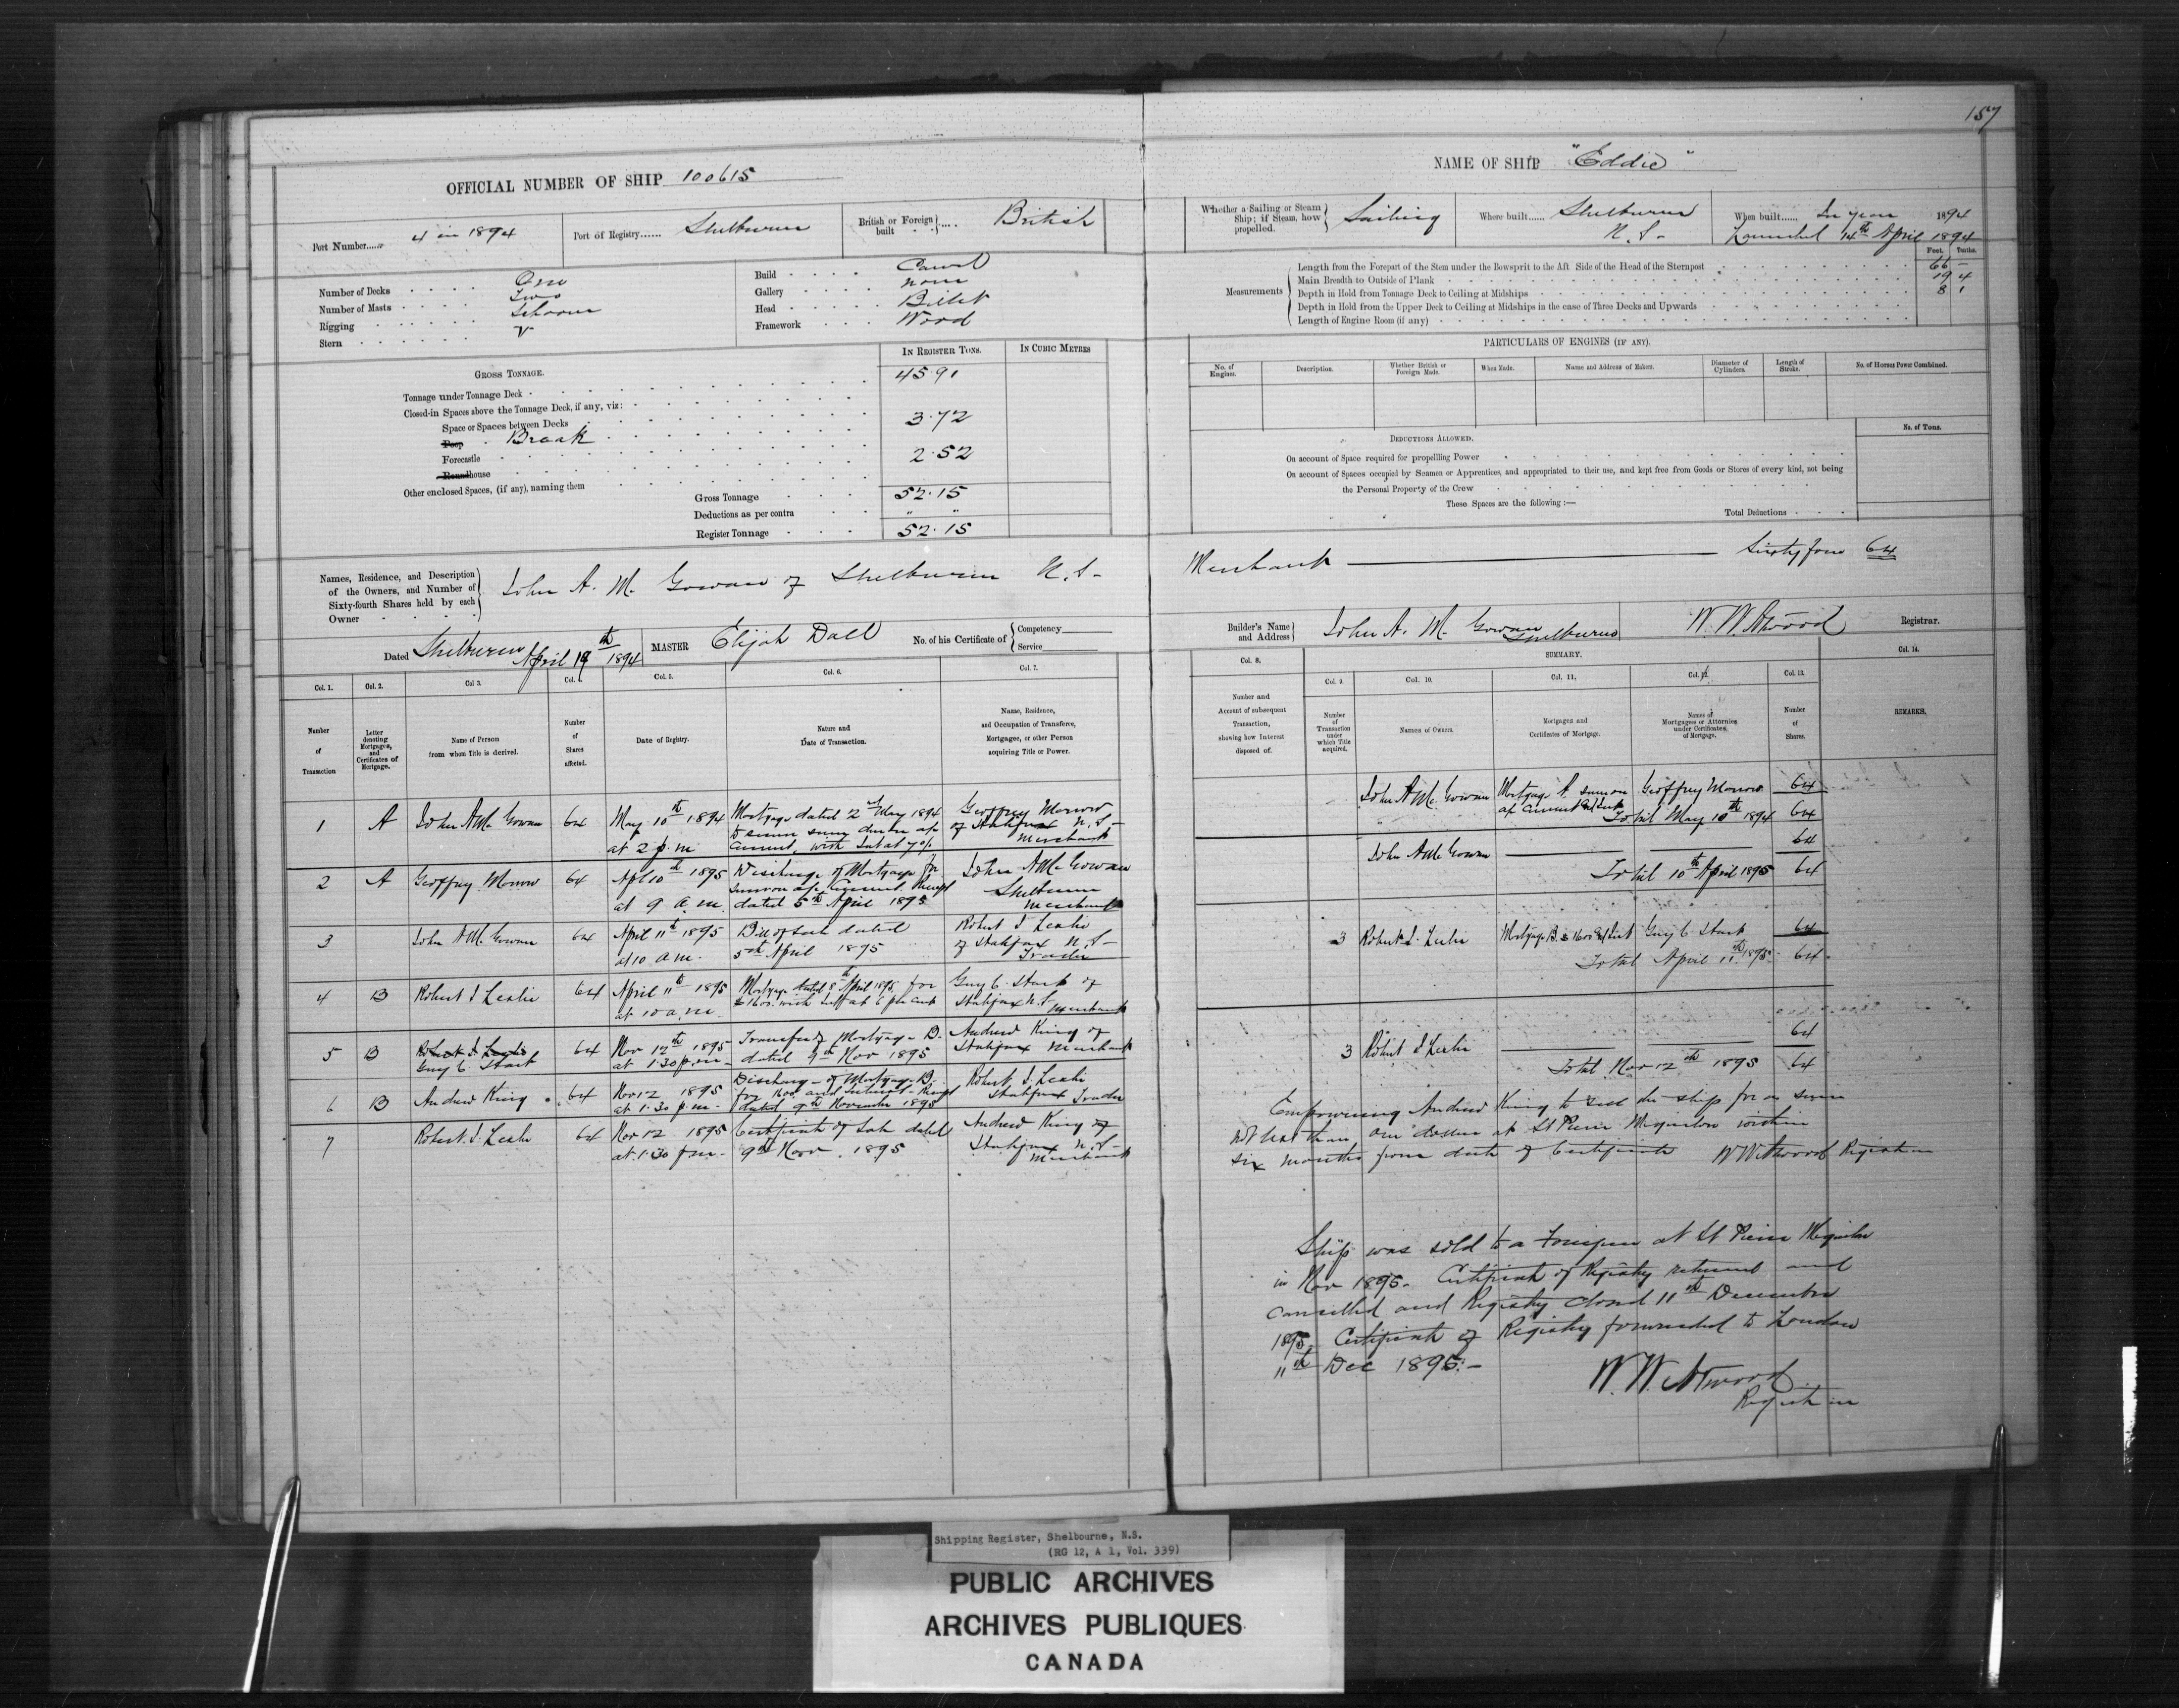 157
OFFICIAL NUMBER OF SHIP 100615
NAME OF SHIP "Eddie"
Port Number...... 4 in 1894
Port of Registry...... Shelburne
British or Foreign built .... British
Whether a Sailing or Steam Ship; if Steam, how propelled. Sailing
Where built...... Shelburne N.S-
When built...... In year 1894
Launched 14th April 1894
Number of Decks One
Number of Masts Two
Rigging Schooner
Stern V
Build Carvel
Gallery none
Head Billet
Framework Wood
Measurements
Feet. Tenths.
Length from the Forepart of the Stem under the Bowsprit to the Aft Side of the Head of the Sternpost 66 -
Main Breadth to Outside of Plank 19 4
Depth in Hold from Tonnage Deck to Ceiling at Midships 8 1
Depth in Hold from the Upper Deck to Ceiling at Midships in the case of Three Decks and Upwards
Length of Engine Room (if any)
GROSS TONNAGE.
IN REGISTER TONS.
IN CUBIC METRES
Tonnage under Tonnage Deck 45.91
Closed-in Spaces above the Tonnage Deck, if any, viz:
Space or Spaces between Decks
Poop Break 3.72
Forecastle
Roundhouse 2.52
Other enclosed Spaces, (if any), naming them
Gross Tonnage 52.15
Deductions as per contra " "
Register Tonnage 52.15
PARTICULARS OF ENGINES (IF ANY).
No. of Engines.
Description.
Whether British or Foreign Made.
When Made.
Name and Address of Makers.
Diameter of Cylinders.
Length of Stroke.
No. of Horses Power Combined.
DEDUCTIONS ALLOWED.
No. of Tons.
On account of Space required for propelling Power
On account of Spaces occupied by Seamen or Apprentices, and appropriated to their use, and kept free from Goods or Stores of every kind, not being
the Personal Property of the Crew
These Spaces are the following :—
Total Deductions
Names, Residence, and Description of the Owners, and Number of Sixty-fourth Shares held by each Owner
John A. Mc Gowan of Shelburne N.S- Merchant Sixty four 64
Dated Shelburne April 19th 1894
MASTER Elijah Dall
No. of his Certificate of Competency Service
Builder's Name and Address John A. Mc Gowan Shelburne
W. W. Atwood Registrar.
Col. 1. Number of Transaction
Col. 2. Letter denoting Mortgages, and Certificates of Mortgage.
Col 3. Name of Person from whom Title is derived.
Col. Number of Shares affected.
Col. 5. Date of Registry.
Col. 6. Nature and Date of Transaction.
Col. 7. Name, Residence, and Occupation of Transferee, Mortgagee, or other Person acquiring Title or Power.
Col. 8. Number and Account of subsequent Transaction, showing how Interest disposed of.
SUMMARY.
Col. 9. Number of Transaction under which Title acquired.
Col. 10. Names of Owners.
Col. 11. Mortgages and Certificates of Mortgage.
Col. 12. Names of Mortgagees or Attornies under Certificates of Mortgage.
Col. 13. Number of Shares.
Col. 14. REMARKS.
1 A John A Mc Gowan 64 May 10th 1894 at 2 p.m Mortgage dated 2nd May 1894 to secure sum due on a/c current, with Int at 7% Geoffrey Morrow of Halifax N.S- Merchant
2 A Geoffrey Morrow 64 Apl 10th 1895 at 9 a.m. Discharge of Mortgage for sum on a/c Current. Receipt dated 5th April 1895 John A Mc Gowan Shelburne Merchant
3 John A Mc Gowan 64 April 11th 1895 at 10 a.m. Bill of Sale dated 5th April 1895 Robert I Leslie of Halifax N.S- Trader
4 B Robert I Leslie 64 April 11th 1895 at 10 a.m. Mortgage dated 8th April 1895 for $1600. with Int at 6 per cent Guy C. Hart of Halifax N.S- Merchant
5 B Robert I. Leslie Guy C. Hart 64 Nov 12th 1895 at 1.30 p.m- Transfer of Mortgage B. dated 9th Nov 1895 Andrew King of Halifax Merchant
6 B Andrew King 64 Nov 12 1895 at 1.30 p.m- Discharge of Mortgage B. for 1600 and Interest- Receipt dated 9th November 1895 Robert I. Leslie Halifax Trader
7 Robert I. Leslie 64 Nov 12 1895 at 1.30 p.m- Certificate of Sale dated 9th Nov. 1895 Andrew King of Halifax N.S- Merchant
John A Mc Gowan 64
" Mortgage A sum on a/c Current & Int Geoffrey Morrow
Total May 10th 1894 64
John A Mc Gowan 64
Total 10th April 1895 64
3 Robert I. Leslie Mortgage B. $1600 & Int Guy C. Hart 64
Total April 11th 1895- 64
3 Robert I Leslie 64
Total Nov 12th 1895 64
Empowering Andrew King to sell the ship for a sum
not less than one dollar at St Pierre Miquelon within
six months from date of Certificate W W Atwood Registrar
Ship was sold to a Foreigner at St Pierre Miquelon
in Nov 1895- Certificate of Registry returned and
cancelled and Registry closed 11th December
1895 Certificate of Registry forwarded to London
11th Dec 1895.-
W. W. Atwood
Registrar
Shipping Register, Shelbourne, N.S.
(RG 12, A 1, Vol. 339)
PUBLIC ARCHIVES
ARCHIVES PUBLIQUES
CANADA